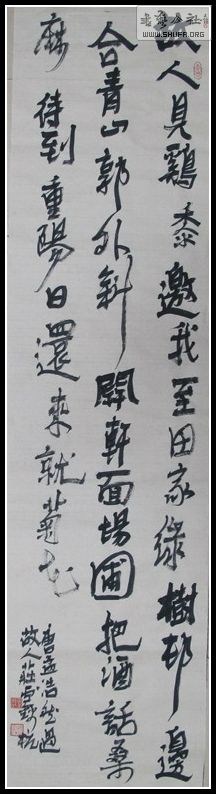 故人見鷄黍邀我至田家綠樹邨邊
合青山郭外斜開軒面場圃把酒話桑
麻待到重陽日還來就菊花
唐孟浩然過
故人莊
公社
WWW.SHUFA.ORG